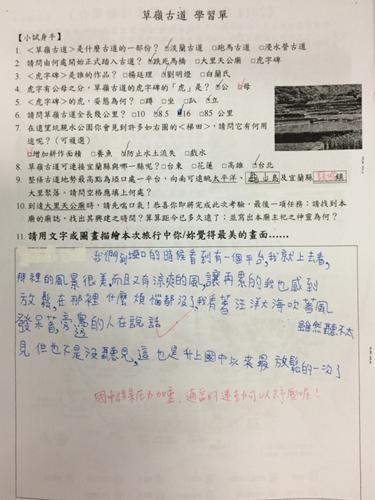 草嶺古道 學習單
【小試身手】
1. <草嶺古道>是什麼古道的一部份？ ☑淡蘭古道 □跑馬古道 □浸水營古道
2. 請問由何處開始正式踏入古道？ ☑跌死馬橋 □大里天公廟 □虎字碑
3. <虎字碑>是誰的作品？ □楊廷理 ☑劉明燈 □白蘭氏
4. 虎字有公母之分，草嶺古道的虎字碑的「虎」是？ □公 ☑母
5. <虎字碑>的虎，姿態為何？ □蹲 □坐 □趴 ☑立
6. 請問草嶺古道全長幾公里？ □10 ☑8.5 □16 □85 公里
7. 在遠望坑親水公園你會見到許多如右圖的<梯田>，請問它有何用
途呢？(可複選)
☑增加耕作面積 □養魚 ☑防止水土流失 □戲水
8. 草嶺古道可連接宜蘭縣與哪一縣呢？ □台東 □花蓮 □高雄 ☑台北
9. 整條古道地勢最高點為埡口處一平台，向南可遠眺太平洋、龜山島及宜蘭縣頭城鎮
大里聚落。請問空格應填上何處？
10. 到達大里天公廟時，請先喘口氣！恭喜你即將完成此次考驗，最後一項任務：請找到本
廟的廟誌，找出其興建之時間？算算距今已多久遠了；並寫出本廟主祀之神靈為何？
11. 請用文字或圖畫描繪本次旅行中你/妳覺得最美的畫面......
我們到埡口的時候看到有一個平台，我就上去看，
那裡的風景很美，而且又有涼爽的風，讓再累的我也感到
放鬆，在那裡什麼煩惱都沒了，我看著汪洋大海吹著風
發呆著，旁邊的人在說話 雖然聽不太
見但也不是沒聽見，這也是升上國中以來最放鬆的一次了
國中課業壓力加重，適當的運動可以紓壓喔！